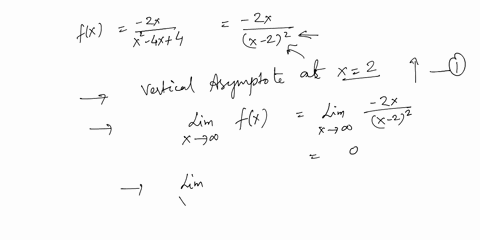 f(x) = -2x / x²-4x+4 = -2x / (x-2)² ←
→ Vertical Asymptote at x=2 ↑ — ①
→ Lim x→∞ f(x) = Lim x→∞ -2x / (x-2)²
= 0
→ Lim